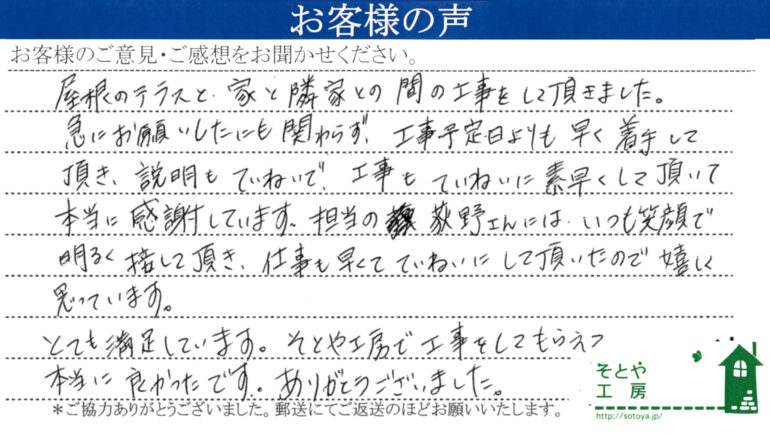 お客様の声
お客様のご意見・ご感想をお聞かせください。
屋根のテラスと、家と隣家との間の工事をして頂きました。
急にお願いしたにも関わらず、工事予定日よりも早く着手して
頂き、説明もていねいで、工事もていねいに素早くして頂いて
本当に感謝しています。担当の荻野さんには、いつも笑顔で
明るく接して頂き、仕事も早くてていねいにして頂いたので嬉しく
思っています。
とても満足しています。そとや工房で工事をしてもらえて
本当に良かったです。ありがとうございました。
そとや
工房
http://sotoya.jp/
*ご協力ありがとうございました。郵送にてご返送のほどお願いいたします。